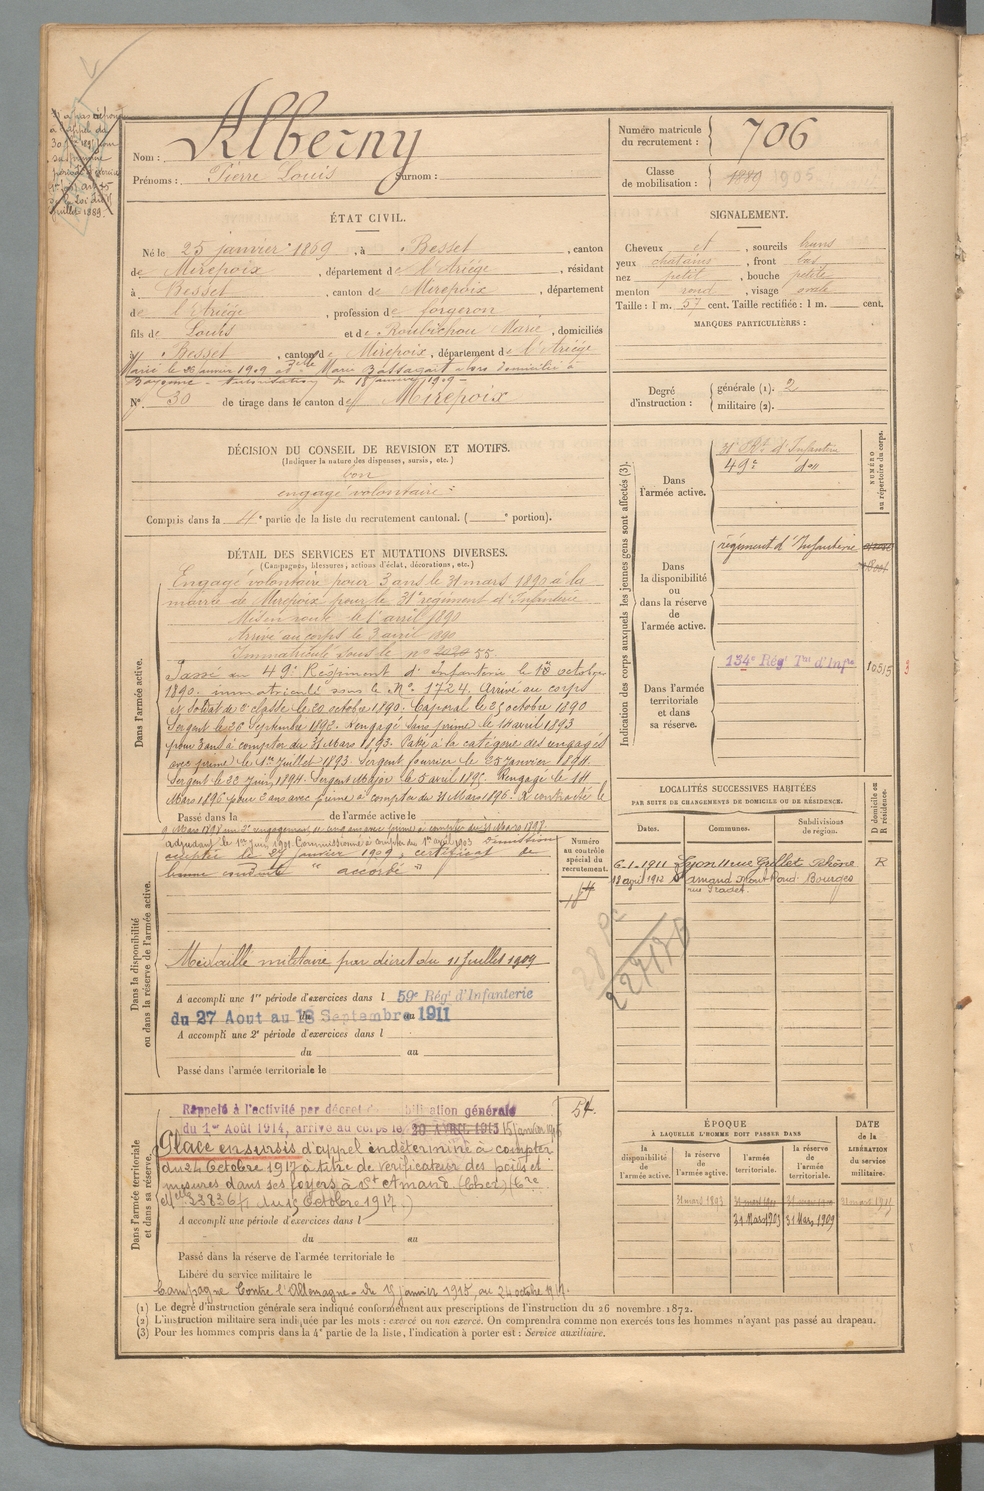 Nom : Alberny
Prénoms : Pierre Louis Surnom :
Numéro matricule du recrutement : 706
Classe de mobilisation : 1889 1905
à l'appel du
période d'exercices
de la loi du
juillet 1889.
ÉTAT CIVIL.
Né le 25 janvier 1869, à Besset, canton
de Mirepoix, département de l'Ariège, résidant
à Besset, canton de Mirepoix, département
de l'Ariège, profession de forgeron
fils de Louis et de Roubichou Marie, domiciliés
à Besset, canton de Mirepoix, département de l'Ariège
Marié le 26 janvier 1909 à Delle Marie domiciliée à
Bayonne - autorisation du 18 janvier 1909 -
N° 30 de tirage dans le canton de Mirepoix
SIGNALEMENT.
Cheveux et, sourcils bruns
yeux chatains, front bas
nez petit, bouche petite
menton rond, visage ovale
Taille : 1 m. 57 cent. Taille rectifiée : 1 m. cent.
MARQUES PARTICULIÈRES :
Degré d'instruction : générale (1). 2
militaire (2).
DÉCISION DU CONSEIL DE REVISION ET MOTIFS.
(Indiquer la nature des dispenses, sursis, etc.)
bon
engagé volontaire
Compris dans la 4e partie de la liste du recrutement cantonal. ( e portion).
DÉTAIL DES SERVICES ET MUTATIONS DIVERSES.
(Campagnes, blessures, actions d'éclat, décorations, etc.)
Dans l'armée active.
Engagé volontaire pour 3 ans le 31 mars 1890 à la
mairie de Mirepoix pour le 31e régiment d'Infanterie
Mis en route le 1er avril 1890
Arrivé au corps le 3 avril 1890
Immatriculé sous le no 2020 55.
Passé au 49e Régiment d'Infanterie le 18 octobre
1890. immatriculé sous le No 1724. Arrivé au corps
et Soldat de 2e classe le 20 octobre 1890. Caporal le 25 octobre 1890
Sergent le 26 Septembre 1892. Rengagé sans prime le 14 avril 1893
pour 3 ans à compter du 31 Mars 1893. Passé à la catégorie des engagés
avec prime le 1er Juillet 1893. Sergent fourrier le 25 Janvier 1894.
Sergent le 22 Juin 1894. Sergent Major le 5 avril 1895. Rengagé le 14
Mars 1896 pour 2 ans avec prime à compter du 31 Mars 1896. A contracté le
Passé dans la de l'armée active le
9 Mars 1898 un 2e rengagement avec prime à compter du 31 Mars 1898
adjudant le 1er Juin 1901. Commissionné à compter du 1er avril 1903 Démission
acceptée le 25 janvier 1909, certificat de
bonne conduite "accordé"
Dans la disponibilité ou dans la réserve de l'armée active.
Médaille militaire par décret du 11 Juillet 1909
A accompli une 1re période d'exercices dans l 59e Régt d'Infanterie
du 27 Aout au 13 Septembre 1911
A accompli une 2e période d'exercices dans l
du au
Passé dans l'armée territoriale le
Numéro au contrôle spécial du recrutement.
Dans l'armée territoriale et dans sa réserve.
Rappelé à l'activité par décret de mobilisation générale
du 1er Août 1914, arrivé au corps le 20 AVRIL 1915 15 janvier 1915
Placé en sursis d'appel indéterminé à compter
du 24 Octobre 1917 à titre de vérificateur des poids et
mesures dans ses foyers à St Amand (Cher)
23836 du 15 Octobre 1917)
54.
A accompli une période d'exercices dans l
du au
Passé dans la réserve de l'armée territoriale le
Libéré du service militaire le
Campagne Contre l'Allemagne - du 15 janvier 1915, au 24 octobre 1917.
Indication des corps auxquels les jeunes gens sont affectés (3).
NUMÉRO au répertoire du corps.
Dans l'armée active.
31e Rgt d'Infanterie
49e do
Dans la disponibilité ou dans la réserve de l'armée active.
régiment d'Infanterie
Dans l'armée territoriale et dans sa réserve.
134e Régt Tal d'Infie 10515 3
LOCALITÉS SUCCESSIVES HABITÉES
PAR SUITE DE CHANGEMENTS DE DOMICILE OU DE RÉSIDENCE.
Dates. Communes. Subdivisions de région. D domicile ou R résidence.
6-1-1911 Lyon 11 rue Grillet Rhône R
18 avril 1912 St Amand Mont Rond Bourges
rue Pradet.
ÉPOQUE
À LAQUELLE L'HOMME DOIT PASSER DANS
la disponibilité de l'armée active. la réserve de l'armée active. l'armée territoriale. la réserve de l'armée territoriale.
DATE de la LIBÉRATION du service militaire.
31 mars 1893
31 Mars 1903 31 Mars 1909
(1) Le degré d'instruction générale sera indiqué conformément aux prescriptions de l'instruction du 26 novembre 1872.
(2) L'instruction militaire sera indiquée par les mots : exercé ou non exercé. On comprendra comme non exercés tous les hommes n'ayant pas passé au drapeau.
(3) Pour les hommes compris dans la 4e partie de la liste, l'indication à porter est : Service auxiliaire.